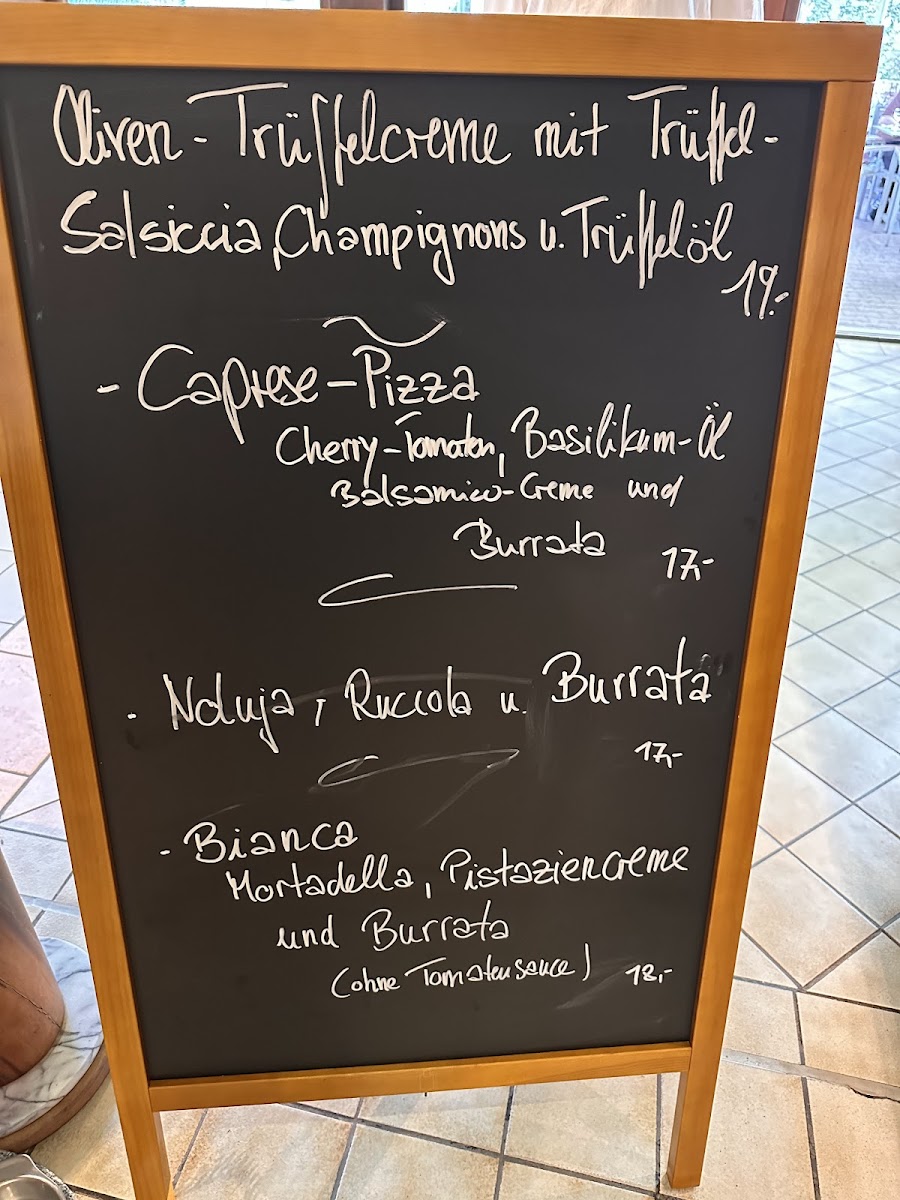 Oliven-Trüffelcreme mit Trüffel-
Salsiccia, Champignons u. Trüffelöl
19.-
- Caprese-Pizza
Cherry-Tomaten, Basilikum-Öl
Balsamico-Creme und
Burrata 17,-
- Nduja, Ruccola u. Burrata
17,-
- Bianca
Mortadella, Pistaziencreme
und Burrata
(ohne Tomatensauce) 18,-